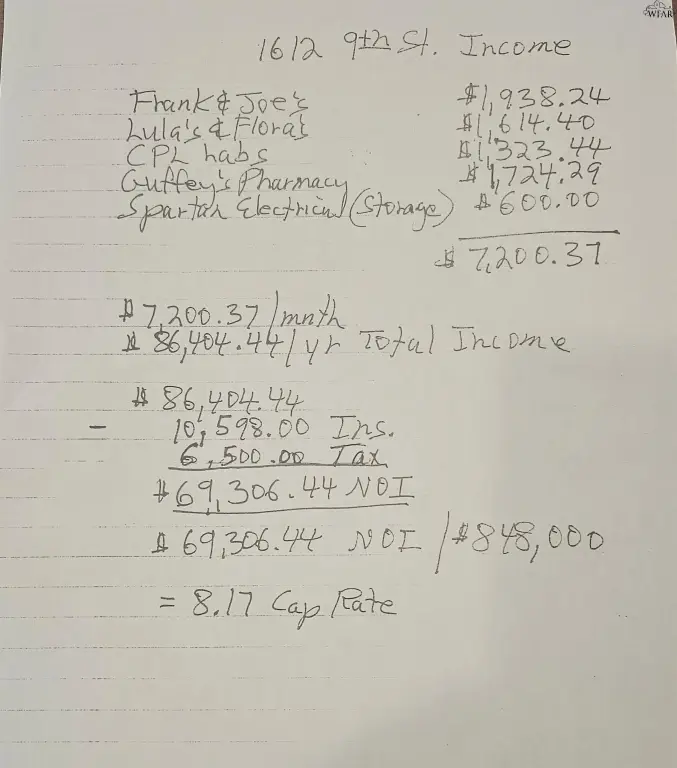 WFAR
1612 9th St. Income
Frank & Joe's $1,938.24
Lula's & Flora's $1,614.40
CPL Labs $1,323.44
Guffey's Pharmacy $1,724.29
Spartan Electrical (Storage) $600.00
$7,200.37
$7,200.37/mnth
$86,404.44/yr Total Income
$86,404.44
- 10,598.00 Ins.
6,500.00 Tax
$69,306.44 NOI
$69,306.44 NOI/$848,000
= 8.17 Cap Rate